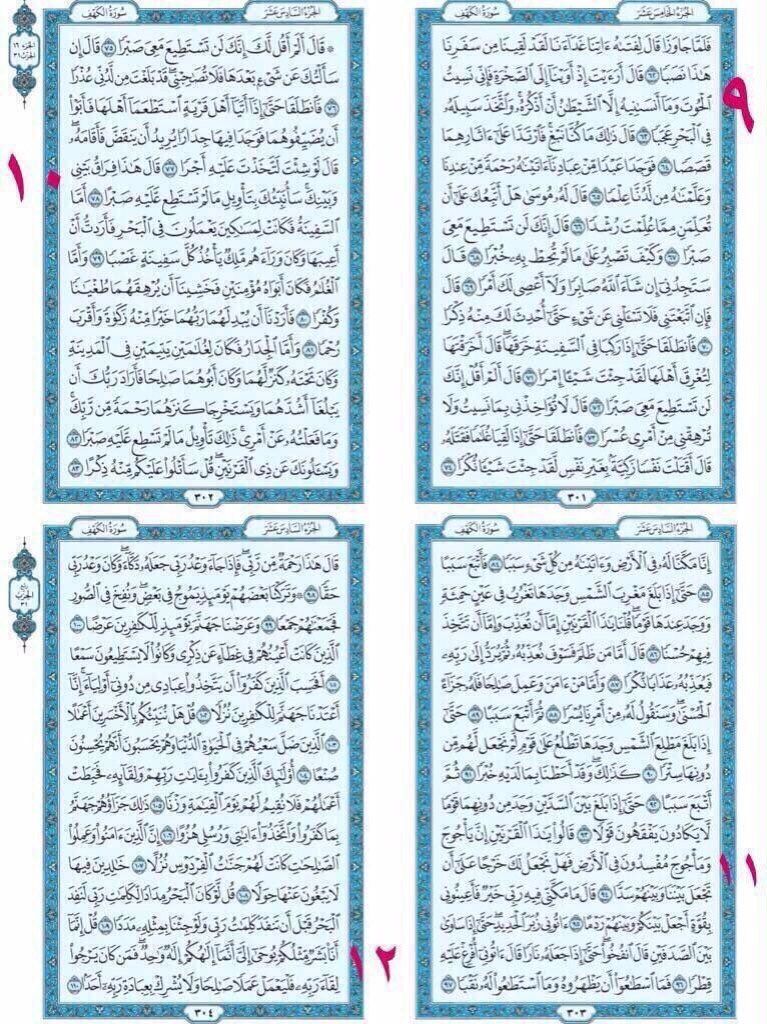 الجزء الخامس عشر
سورة الكهف
فَلَمَّا جَاوَزَا قَالَ لِفَتَىٰهُ ءَاتِنَا غَدَآءَنَا لَقَدْ لَقِينَا مِن سَفَرِنَا
هَٰذَا نَصَبًا ٦٢ قَالَ أَرَءَيْتَ إِذْ أَوَيْنَآ إِلَى ٱلصَّخْرَةِ فَإِنِّى نَسِيتُ
ٱلْحُوتَ وَمَآ أَنسَىٰنِيهُ إِلَّا ٱلشَّيْطَٰنُ أَنْ أَذْكُرَهُۥ وَٱتَّخَذَ سَبِيلَهُۥ
فِى ٱلْبَحْرِ عَجَبًا ٦٣ قَالَ ذَٰلِكَ مَا كُنَّا نَبْغِ فَٱرْتَدَّا عَلَىٰٓ ءَاثَارِهِمَا
قَصَصًا ٦٤ فَوَجَدَا عَبْدًا مِّنْ عِبَادِنَآ ءَاتَيْنَٰهُ رَحْمَةً مِّنْ عِندِنَا
وَعَلَّمْنَٰهُ مِن لَّدُنَّا عِلْمًا ٦٥ قَالَ لَهُۥ مُوسَىٰ هَلْ أَتَّبِعُكَ عَلَىٰٓ أَن
تُعَلِّمَنِ مِمَّا عُلِّمْتَ رُشْدًا ٦٦ قَالَ إِنَّكَ لَن تَسْتَطِيعَ مَعِىَ
صَبْرًا ٦٧ وَكَيْفَ تَصْبِرُ عَلَىٰ مَا لَمْ تُحِطْ بِهِۦ خُبْرًا ٦٨ قَالَ
سَتَجِدُنِىٓ إِن شَآءَ ٱللَّهُ صَابِرًا وَلَآ أَعْصِى لَكَ أَمْرًا ٦٩ قَالَ
فَإِنِ ٱتَّبَعْتَنِى فَلَا تَسْـَٔلْنِى عَن شَىْءٍ حَتَّىٰٓ أُحْدِثَ لَكَ مِنْهُ ذِكْرًا
٧٠ فَٱنطَلَقَا حَتَّىٰٓ إِذَا رَكِبَا فِى ٱلسَّفِينَةِ خَرَقَهَا قَالَ أَخَرَقْتَهَا
لِتُغْرِقَ أَهْلَهَا لَقَدْ جِئْتَ شَيْـًٔا إِمْرًا ٧١ قَالَ أَلَمْ أَقُلْ إِنَّكَ
لَن تَسْتَطِيعَ مَعِىَ صَبْرًا ٧٢ قَالَ لَا تُؤَاخِذْنِى بِمَا نَسِيتُ وَلَا
تُرْهِقْنِى مِنْ أَمْرِى عُسْرًا ٧٣ فَٱنطَلَقَا حَتَّىٰٓ إِذَا لَقِيَا غُلَٰمًا فَقَتَلَهُۥ
قَالَ أَقَتَلْتَ نَفْسًا زَكِيَّةًۢ بِغَيْرِ نَفْسٍ لَّقَدْ جِئْتَ شَيْـًٔا نُّكْرًا ٧٤
٣٠١
٩
الجزء السادس عشر
سورة الكهف
الجزء ١٦
الحزب ٣١
۞ قَالَ أَلَمْ أَقُل لَّكَ إِنَّكَ لَن تَسْتَطِيعَ مَعِىَ صَبْرًا ٧٥ قَالَ إِن
سَأَلْتُكَ عَن شَىْءٍۭ بَعْدَهَا فَلَا تُصَٰحِبْنِى قَدْ بَلَغْتَ مِن لَّدُنِّى عُذْرًا
٧٦ فَٱنطَلَقَا حَتَّىٰٓ إِذَآ أَتَيَآ أَهْلَ قَرْيَةٍ ٱسْتَطْعَمَآ أَهْلَهَا فَأَبَوْا۟
أَن يُضَيِّفُوهُمَا فَوَجَدَا فِيهَا جِدَارًا يُرِيدُ أَن يَنقَضَّ فَأَقَامَهُۥ
قَالَ لَوْ شِئْتَ لَتَّخَذْتَ عَلَيْهِ أَجْرًا ٧٧ قَالَ هَٰذَا فِرَاقُ بَيْنِى
وَبَيْنِكَ سَأُنَبِّئُكَ بِتَأْوِيلِ مَا لَمْ تَسْتَطِع عَّلَيْهِ صَبْرًا ٧٨ أَمَّا
ٱلسَّفِينَةُ فَكَانَتْ لِمَسَٰكِينَ يَعْمَلُونَ فِى ٱلْبَحْرِ فَأَرَدتُّ أَنْ
أَعِيبَهَا وَكَانَ وَرَآءَهُم مَّلِكٌ يَأْخُذُ كُلَّ سَفِينَةٍ غَصْبًا ٧٩ وَأَمَّا
ٱلْغُلَٰمُ فَكَانَ أَبَوَاهُ مُؤْمِنَيْنِ فَخَشِينَآ أَن يُرْهِقَهُمَا طُغْيَٰنًا
وَكُفْرًا ٨٠ فَأَرَدْنَآ أَن يُبْدِلَهُمَا رَبُّهُمَا خَيْرًا مِّنْهُ زَكَوٰةً وَأَقْرَبَ
رُحْمًا ٨١ وَأَمَّا ٱلْجِدَارُ فَكَانَ لِغُلَٰمَيْنِ يَتِيمَيْنِ فِى ٱلْمَدِينَةِ
وَكَانَ تَحْتَهُۥ كَنزٌ لَّهُمَا وَكَانَ أَبُوهُمَا صَٰلِحًا فَأَرَادَ رَبُّكَ أَن
يَبْلُغَآ أَشُدَّهُمَا وَيَسْتَخْرِجَا كَنزَهُمَا رَحْمَةً مِّن رَّبِّكَ
وَمَا فَعَلْتُهُۥ عَنْ أَمْرِى ذَٰلِكَ تَأْوِيلُ مَا لَمْ تَسْطِع عَّلَيْهِ صَبْرًا ٨٢
وَيَسْـَٔلُونَكَ عَن ذِى ٱلْقَرْنَيْنِ قُلْ سَأَتْلُوا۟ عَلَيْكُم مِّنْهُ ذِكْرًا ٨٣
٣٠٢
١٠
الجزء السادس عشر
سورة الكهف
إِنَّا مَكَّنَّا لَهُۥ فِى ٱلْأَرْضِ وَءَاتَيْنَٰهُ مِن كُلِّ شَىْءٍ سَبَبًا ٨٤ فَأَتْبَعَ سَبَبًا
٨٥ حَتَّىٰٓ إِذَا بَلَغَ مَغْرِبَ ٱلشَّمْسِ وَجَدَهَا تَغْرُبُ فِى عَيْنٍ حَمِئَةٍ
وَوَجَدَ عِندَهَا قَوْمًا قُلْنَا يَٰذَا ٱلْقَرْنَيْنِ إِمَّآ أَن تُعَذِّبَ وَإِمَّآ أَن تَتَّخِذَ
فِيهِمْ حُسْنًا ٨٦ قَالَ أَمَّا مَن ظَلَمَ فَسَوْفَ نُعَذِّبُهُۥ ثُمَّ يُرَدُّ إِلَىٰ رَبِّهِۦ
فَيُعَذِّبُهُۥ عَذَابًا نُّكْرًا ٨٧ وَأَمَّا مَنْ ءَامَنَ وَعَمِلَ صَٰلِحًا فَلَهُۥ جَزَآءً
ٱلْحُسْنَىٰ وَسَنَقُولُ لَهُۥ مِنْ أَمْرِنَا يُسْرًا ٨٨ ثُمَّ أَتْبَعَ سَبَبًا ٨٩ حَتَّىٰٓ
إِذَا بَلَغَ مَطْلِعَ ٱلشَّمْسِ وَجَدَهَا تَطْلُعُ عَلَىٰ قَوْمٍ لَّمْ نَجْعَل لَّهُم مِّن
دُونِهَا سِتْرًا ٩٠ كَذَٰلِكَ وَقَدْ أَحَطْنَا بِمَا لَدَيْهِ خُبْرًا ٩١ ثُمَّ
أَتْبَعَ سَبَبًا ٩٢ حَتَّىٰٓ إِذَا بَلَغَ بَيْنَ ٱلسَّدَّيْنِ وَجَدَ مِن دُونِهِمَا قَوْمًا
لَّا يَكَادُونَ يَفْقَهُونَ قَوْلًا ٩٣ قَالُوا۟ يَٰذَا ٱلْقَرْنَيْنِ إِنَّ يَأْجُوجَ
وَمَأْجُوجَ مُفْسِدُونَ فِى ٱلْأَرْضِ فَهَلْ نَجْعَلُ لَكَ خَرْجًا عَلَىٰٓ أَن
تَجْعَلَ بَيْنَنَا وَبَيْنَهُمْ سَدًّا ٩٤ قَالَ مَا مَكَّنِّى فِيهِ رَبِّى خَيْرٌ فَأَعِينُونِى
بِقُوَّةٍ أَجْعَلْ بَيْنَكُمْ وَبَيْنَهُمْ رَدْمًا ٩٥ ءَاتُونِى زُبَرَ ٱلْحَدِيدِ حَتَّىٰٓ إِذَا سَاوَىٰ
بَيْنَ ٱلصَّدَفَيْنِ قَالَ ٱنفُخُوا۟ حَتَّىٰٓ إِذَا جَعَلَهُۥ نَارًا قَالَ ءَاتُونِىٓ أُفْرِغْ عَلَيْهِ
قِطْرًا ٩٦ فَمَا ٱسْطَٰعُوٓا۟ أَن يَظْهَرُوهُ وَمَا ٱسْتَطَٰعُوا۟ لَهُۥ نَقْبًا ٩٧
٣٠٣
١١
الجزء السادس عشر
سورة الكهف
ربع
الحزب
٣١
قَالَ هَٰذَا رَحْمَةٌ مِّن رَّبِّى فَإِذَا جَآءَ وَعْدُ رَبِّى جَعَلَهُۥ دَكَّآءَ وَكَانَ وَعْدُ رَبِّى
حَقًّا ٩٨ ۞ وَتَرَكْنَا بَعْضَهُمْ يَوْمَئِذٍ يَمُوجُ فِى بَعْضٍ وَنُفِخَ فِى ٱلصُّورِ
فَجَمَعْنَٰهُمْ جَمْعًا ٩٩ وَعَرَضْنَا جَهَنَّمَ يَوْمَئِذٍ لِّلْكَٰفِرِينَ عَرْضًا ١٠٠
ٱلَّذِينَ كَانَتْ أَعْيُنُهُمْ فِى غِطَآءٍ عَن ذِكْرِى وَكَانُوا۟ لَا يَسْتَطِيعُونَ سَمْعًا
١٠١ أَفَحَسِبَ ٱلَّذِينَ كَفَرُوٓا۟ أَن يَتَّخِذُوا۟ عِبَادِى مِن دُونِىٓ أَوْلِيَآءَ إِنَّآ
أَعْتَدْنَا جَهَنَّمَ لِلْكَٰفِرِينَ نُزُلًا ١٠٢ قُلْ هَلْ نُنَبِّئُكُم بِٱلْأَخْسَرِينَ أَعْمَٰلًا
١٠٣ ٱلَّذِينَ ضَلَّ سَعْيُهُمْ فِى ٱلْحَيَوٰةِ ٱلدُّنْيَا وَهُمْ يَحْسَبُونَ أَنَّهُمْ يُحْسِنُونَ
صُنْعًا ١٠٤ أُو۟لَٰٓئِكَ ٱلَّذِينَ كَفَرُوا۟ بِـَٔايَٰتِ رَبِّهِمْ وَلِقَآئِهِۦ فَحَبِطَتْ
أَعْمَٰلُهُمْ فَلَا نُقِيمُ لَهُمْ يَوْمَ ٱلْقِيَٰمَةِ وَزْنًا ١٠٥ ذَٰلِكَ جَزَآؤُهُمْ جَهَنَّمُ
بِمَا كَفَرُوا۟ وَٱتَّخَذُوٓا۟ ءَايَٰتِى وَرُسُلِى هُزُوًا ١٠٦ إِنَّ ٱلَّذِينَ ءَامَنُوا۟ وَعَمِلُوا۟
ٱلصَّٰلِحَٰتِ كَانَتْ لَهُمْ جَنَّٰتُ ٱلْفِرْدَوْسِ نُزُلًا ١٠٧ خَٰلِدِينَ فِيهَا
لَا يَبْغُونَ عَنْهَا حِوَلًا ١٠٨ قُل لَّوْ كَانَ ٱلْبَحْرُ مِدَادًا لِّكَلِمَٰتِ رَبِّى لَنَفِدَ
ٱلْبَحْرُ قَبْلَ أَن تَنفَدَ كَلِمَٰتُ رَبِّى وَلَوْ جِئْنَا بِمِثْلِهِۦ مَدَدًا ١٠٩ قُلْ إِنَّمَآ
أَنَا۠ بَشَرٌ مِّثْلُكُمْ يُوحَىٰٓ إِلَىَّ أَنَّمَآ إِلَٰهُكُمْ إِلَٰهٌ وَٰحِدٌ فَمَن كَانَ يَرْجُوا۟
لِقَآءَ رَبِّهِۦ فَلْيَعْمَلْ عَمَلًا صَٰلِحًا وَلَا يُشْرِكْ بِعِبَادَةِ رَبِّهِۦٓ أَحَدًۢا ١١٠
٣٠٤
١٢